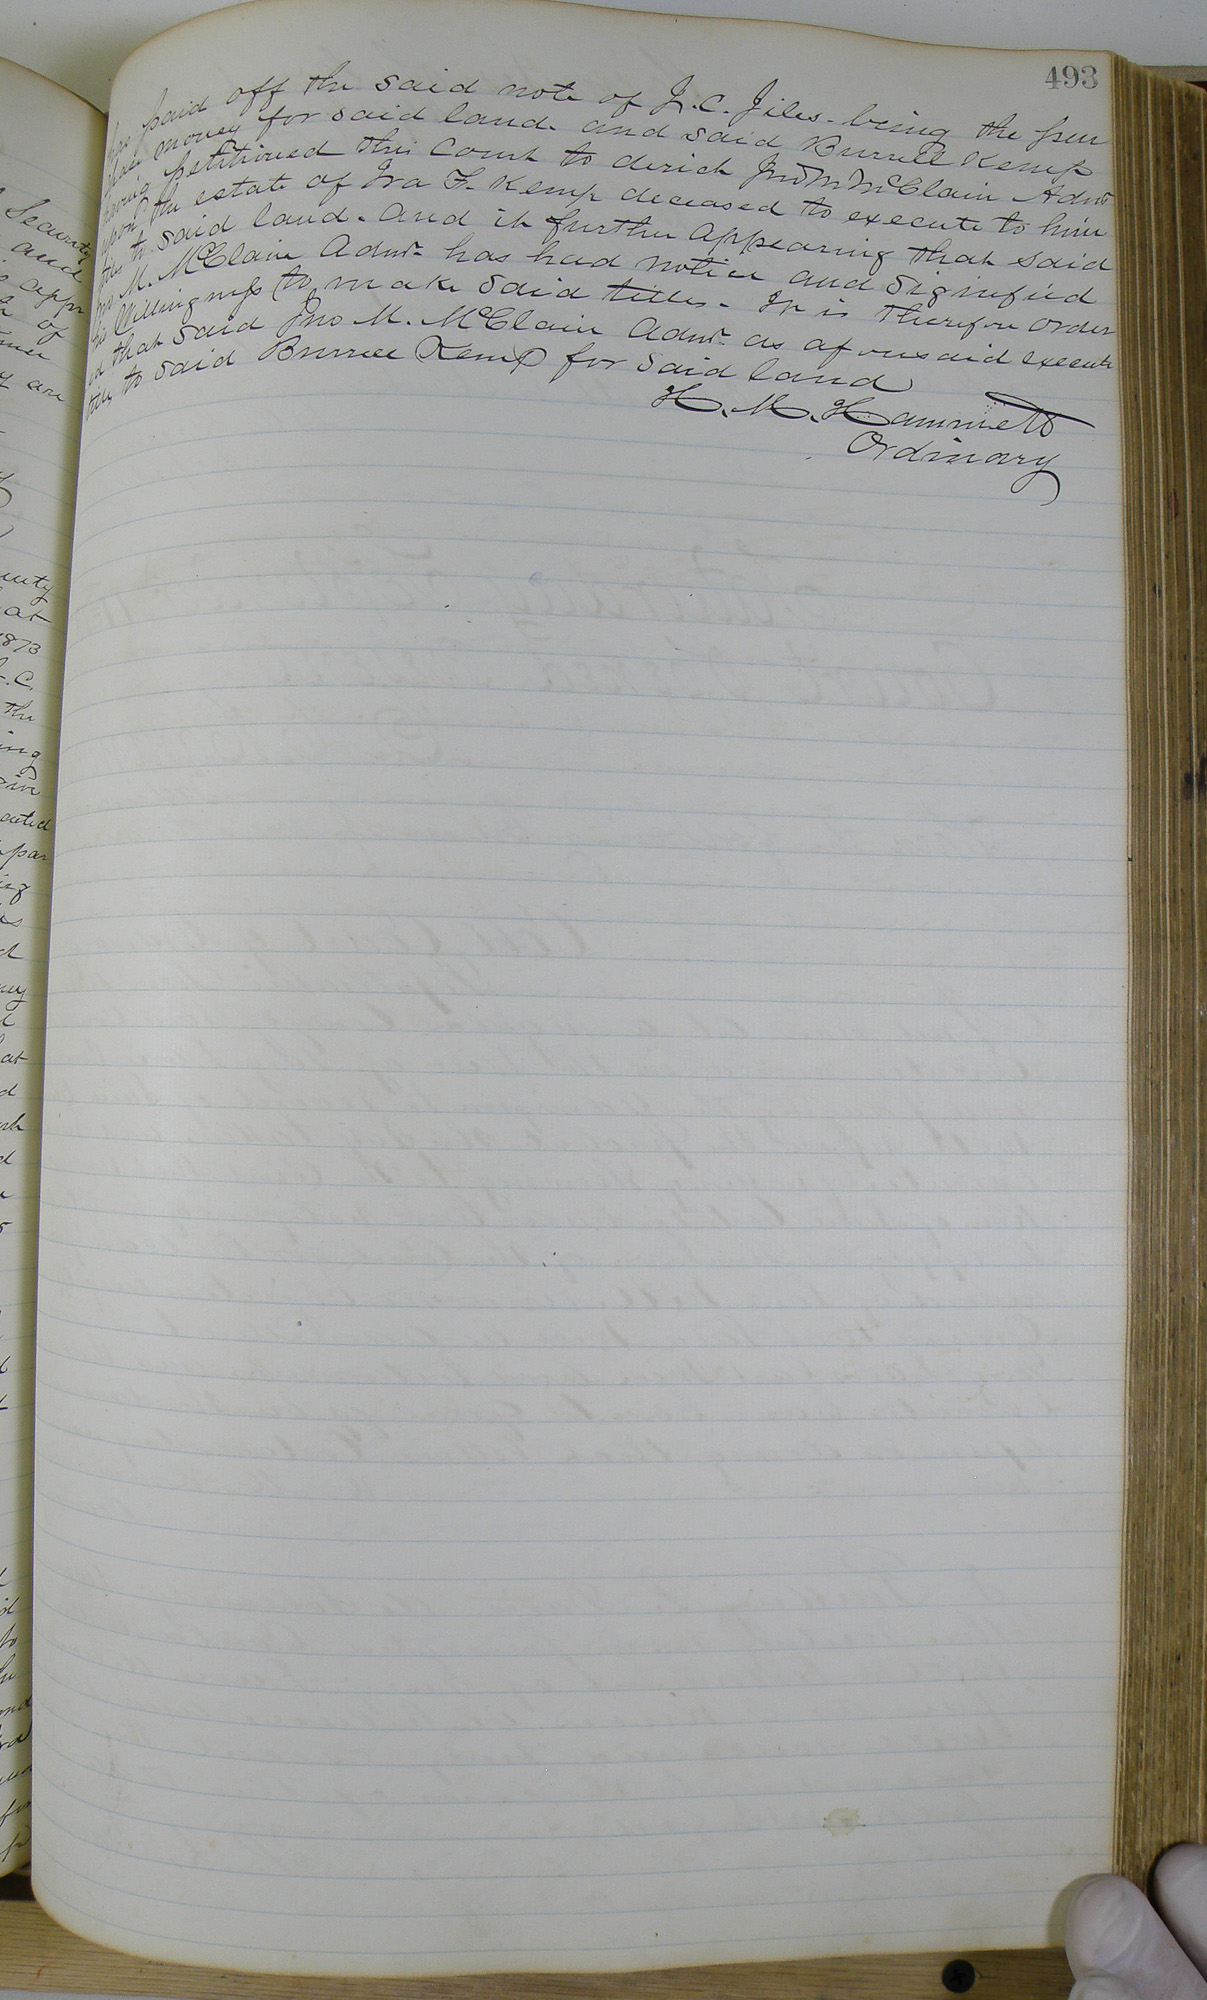 493
has paid off the said note of J. C. Jiles. being the pur
chase money for said land. and said Burrell Kemp
having petitioned this Court to derict Jno M. McClain Admr
upon the estate of Ira F. Kemp deceased to execute to him
titles to said land. And it further appearing that said
Jno M. McClain Admr. has had notice and Signified
his Willingness to make said titles. It is therefore order
ed that said Jno M. McClain Admr. as aforesaid execute
titles to said Burrell Kemp for said land
H. M. Hammett
Ordinary
Security
and
appr
of
are
unty
at
1873
J. C.
the
ing